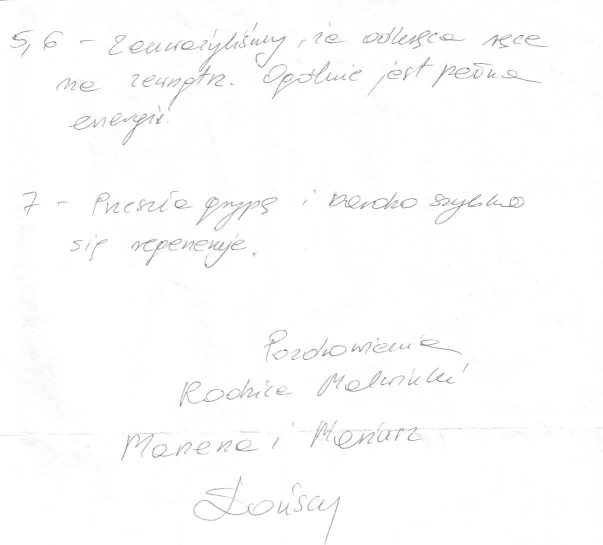 5,6 - Zauważyliśmy, że odkręca ręce
na zewnątrz. Ogólnie jest pełna
energii!
7 - Przeszła grypę i bardzo szybko
się regeneruje.
Pozdrowienia
Rodzice Malwinki
Marzena i Mariusz